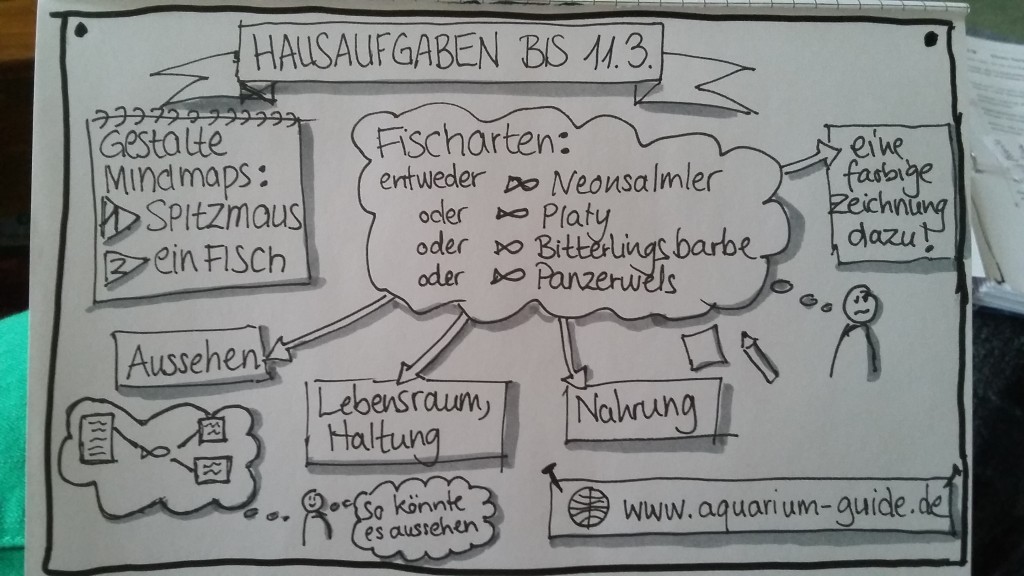 HAUSAUFGABEN BIS 11.3.
Gestalte
Mindmaps:
1 Spitzmaus
2 ein Fisch
Fischarten:
entweder Neonsalmler
oder Platy
oder Bitterlingsbarbe
oder Panzerwels
eine
farbige
Zeichnung
dazu!
Aussehen
Lebensraum,
Haltung
Nahrung
So könnte
es aussehen
www.aquarium-guide.de